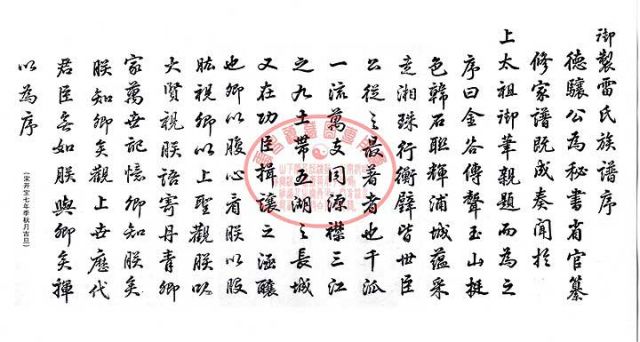 御製雷氏族譜序
德驤公為秘書省官纂
修家譜既成奏聞於
上太祖御筆親題而為之
序曰金谷傳聲玉山挺
色韓石聯輝浦城蘊采
走湘珠行衡璧皆世臣
公從之最著者也千流
一流萬支同源襟三江
之九土帶五湖之長城
又在功臣揖讓之涵釀
也卿以腹心看朕以股
肱視卿以上聖觀朕以
大賢視朕語寄丹青卿
家萬世記憶卿知朕矣
朕知卿矣觀上世歷代
君臣無如朕與卿矣禪
以為序
(宋开宝七年季秋月吉旦)